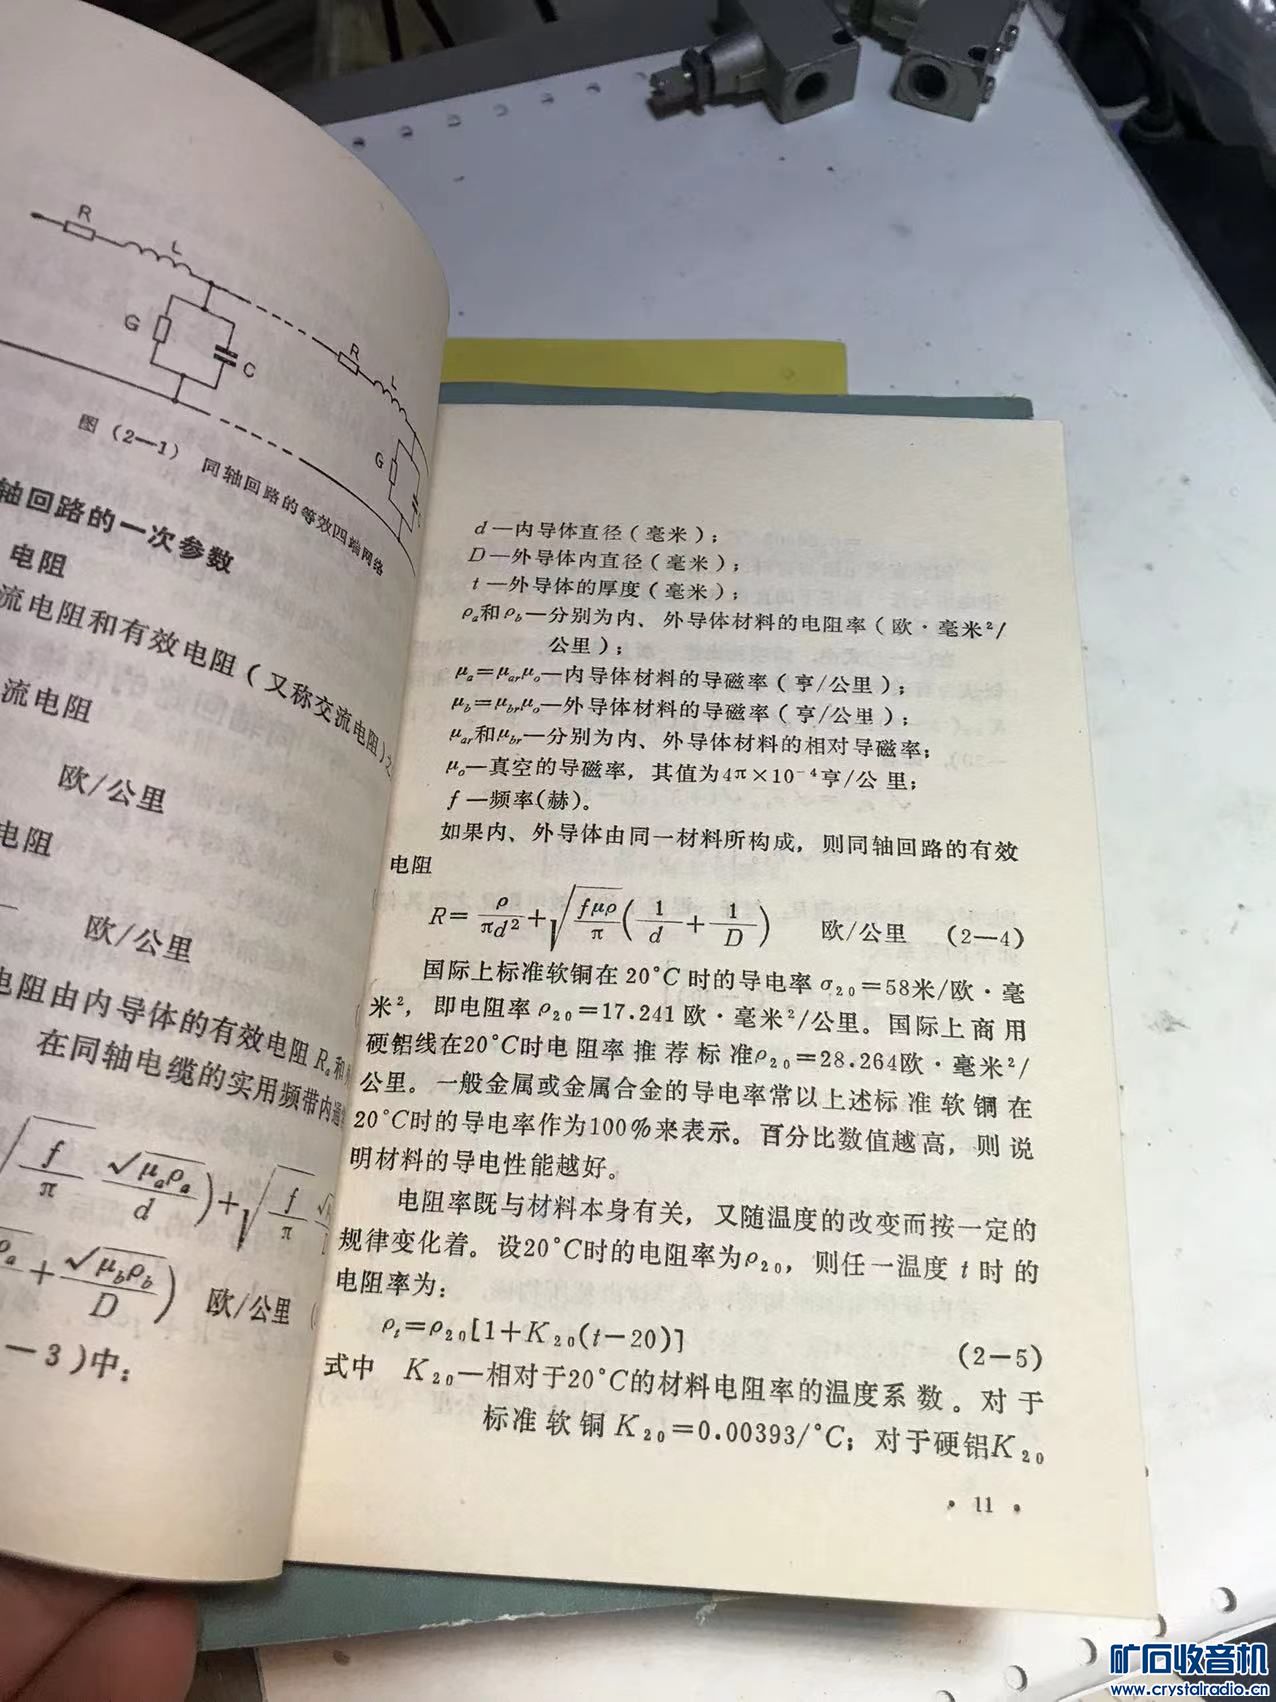 R
L
G
C
R
L
G
图（2—1） 同轴回路的等效四端网络
轴回路的一次参数
电阻
流电阻和有效电阻（又称交流电阻）之
流电阻
欧/公里
电阻
欧/公里
电阻由内导体的有效电阻 Rₐ和
在同轴电缆的实用频带内通
√(f/π) √(μₐρₐ)/d)+√(f/π)
ρₐ + √(μ_bρ_b)/D) 欧/公里
—3)中:
d —内导体直径（毫米）;
D—外导体内直径（毫米）;
t —外导体的厚度（毫米）;
ρₐ和ρ_b—分别为内、外导体材料的电阻率（欧·毫米²/
公里）;
μₐ=μₐᵣμₒ—内导体材料的导磁率（亨/公里）;
μ_b=μ_brμₒ—外导体材料的导磁率（亨/公里）;
μₐᵣ和μ_br—分别为内、外导体材料的相对导磁率;
μₒ—真空的导磁率，其值为4π×10⁻⁴亨/公里;
f —频率(赫)。
如果内、外导体由同一材料所构成，则同轴回路的有效
电阻
R=ρ/πd²+√(fμρ/π)(1/d+1/D) 欧/公里 (2—4)
国际上标准软铜在 20°C 时的导电率 σ₂₀=58米/欧·毫
米²，即电阻率 ρ₂₀=17.241欧·毫米²/公里。国际上商用
硬铝线在20°C时电阻率推荐标准ρ₂₀=28.264欧·毫米²/
公里。一般金属或金属合金的导电率常以上述标准软铜在
20°C时的导电率作为100%来表示。百分比数值越高，则说
明材料的导电性能越好。
电阻率既与材料本身有关，又随温度的改变而按一定的
规律变化着。设20°C时的电阻率为ρ₂₀，则任一温度 t 时的
电阻率为:
ρₜ=ρ₂₀[1+K₂₀(t—20)] (2—5)
式中 K₂₀—相对于20°C的材料电阻率的温度系数。对于
标准软铜K₂₀=0.00393/°C; 对于硬铝K₂₀
• 11 •
矿石收音机
www.crystalradio.cn